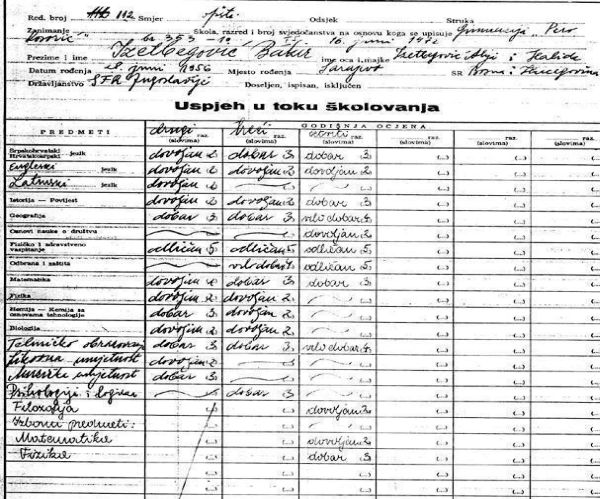 Red. broj 112 Smjer Opšti Odsjek Struka
Zanimanje Škola, razred i broj svjedočanstva na osnovu koga se upisuje Gimnazija "Pero
Kosorić" br. 353 II 16. juni
Prezime i ime Izetbegović Bakir ime oca i majke Izetbegović Alij i Halida
Datum rođenja 28. juni 1956 Mjesto rođenja Sarajevo SR Bosna i Hercegovina
Državljanstvo SFR Jugoslavije Doseljen, ispisan, isključen
Uspjeh u toku školovanja
PREDMETI GODIŠNJA OCJENA
drugi raz. treći raz. četvrti raz. raz. raz. raz. raz.
(slovima) (slovima) (slovima) (slovima) (slovima) (slovima) (slovima)
Srpskohrvatski Hrvatskosrpski jezik dovoljan 2 dobar 3 dobar 3
Engleski jezik dovoljan 2 dovoljan 2 dovoljan 2
Latinski jezik dovoljan 2
Istorija — Povijest dovoljan 2 dovoljan 2 dobar 3
Geografija dobar 3 dobar 3 vrlo dobar 4
Osnovi nauke o društvu dovoljan 2
Fizičko i zdravstveno vaspitanje odličan 5 odličan 5 odličan 5
Odbrana i zaštita vrlo dobar 4 odličan 5
Matematika dovoljan 2 dobar 3 dobar 3
Fizika dovoljan 2 dovoljan 2
Hemija — Kemija sa osnovama tehnologije dobar 3 dovoljan 2
Biologija dovoljan 2 dovoljan 2
Tehničko obrazovanje dobar 3 dobar 3 vrlo dobar 4
Likovna umjetnost dovoljan 2
Muzička umjetnost dobar 3
Psihologija i logika dobar 3
Filozofija dovoljan 2
Izborni predmeti:
Matematika dovoljan 2
Fizika dobar 3